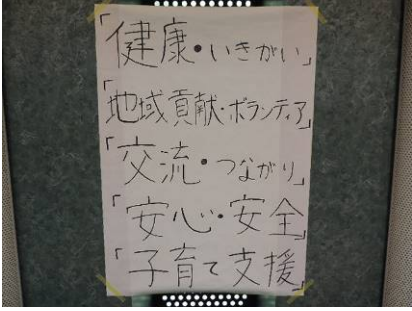 「健康・いきがい」
「地域貢献・ボランティア」
「交流・つながり」
「安心・安全」
「子育て支援」